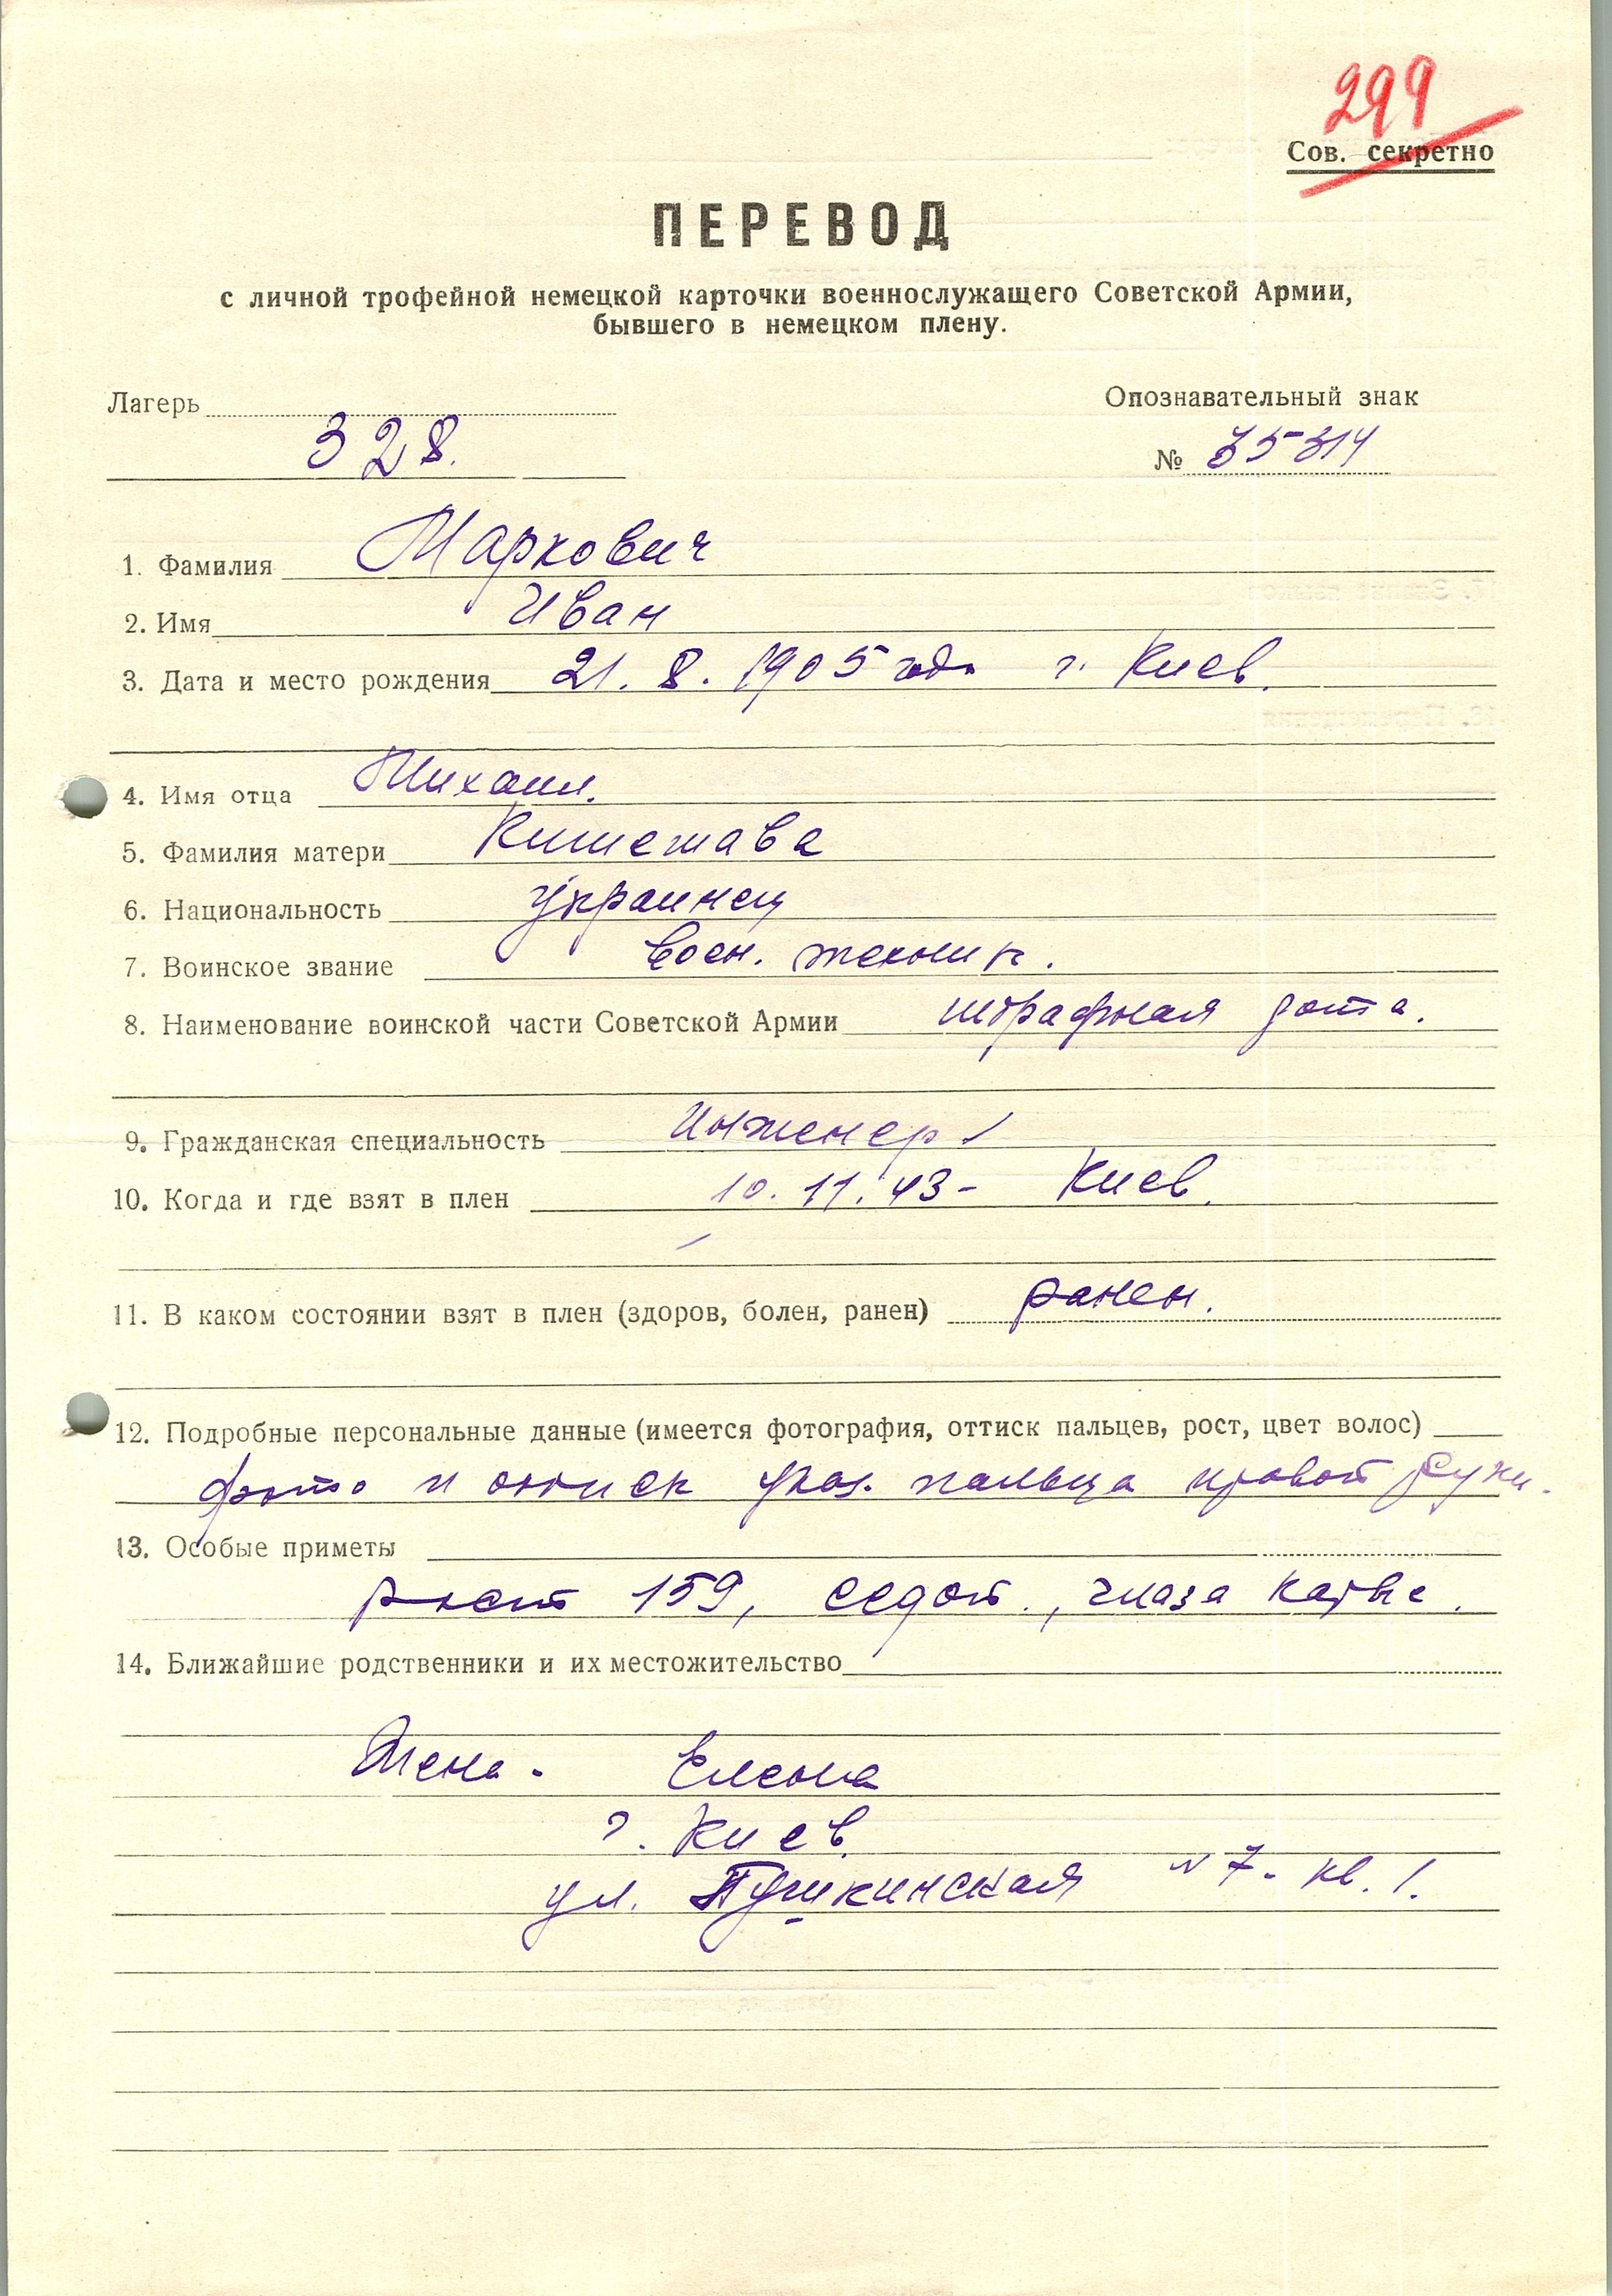 299
Сов. секретно
ПЕРЕВОД
с личной трофейной немецкой карточки военнослужащего Советской Армии,
бывшего в немецком плену.
Лагерь Опознавательный знак
328. № 35314
1. Фамилия Маркович
2. Имя Иван
3. Дата и место рождения 21. 8. 1905 года г. Киев.
4. Имя отца Михаил.
5. Фамилия матери
6. Национальность украинец
7. Воинское звание воен. техник.
8. Наименование воинской части Советской Армии штрафная рота.
9. Гражданская специальность инженер
10. Когда и где взят в плен 10. 11. 43 - Киев.
11. В каком состоянии взят в плен (здоров, болен, ранен) ранен.
12. Подробные персональные данные (имеется фотография, оттиск пальцев, рост, цвет волос)
фото и оттиск указ. пальца правой руки.
13. Особые приметы
рост 159, седой, глаза карие.
14. Ближайшие родственники и их местожительство
Жена - Елена
г. Киев.
ул. Пушкинская № 7 - кв. 1.